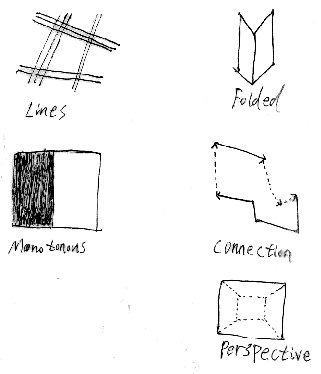 Lines
Folded
Monotonous
Connection
Perspective